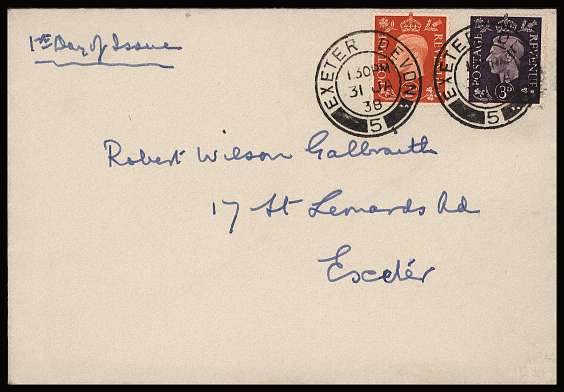 1st Day of Issue
EXETER DEVON
1 30 PM
31 JA
38
5
POSTAGE
REVENUE
EXETER
5
POSTAGE
REVENUE
3D
Robert Wilson Galbraith
17 St Leonards Rd
Exeter